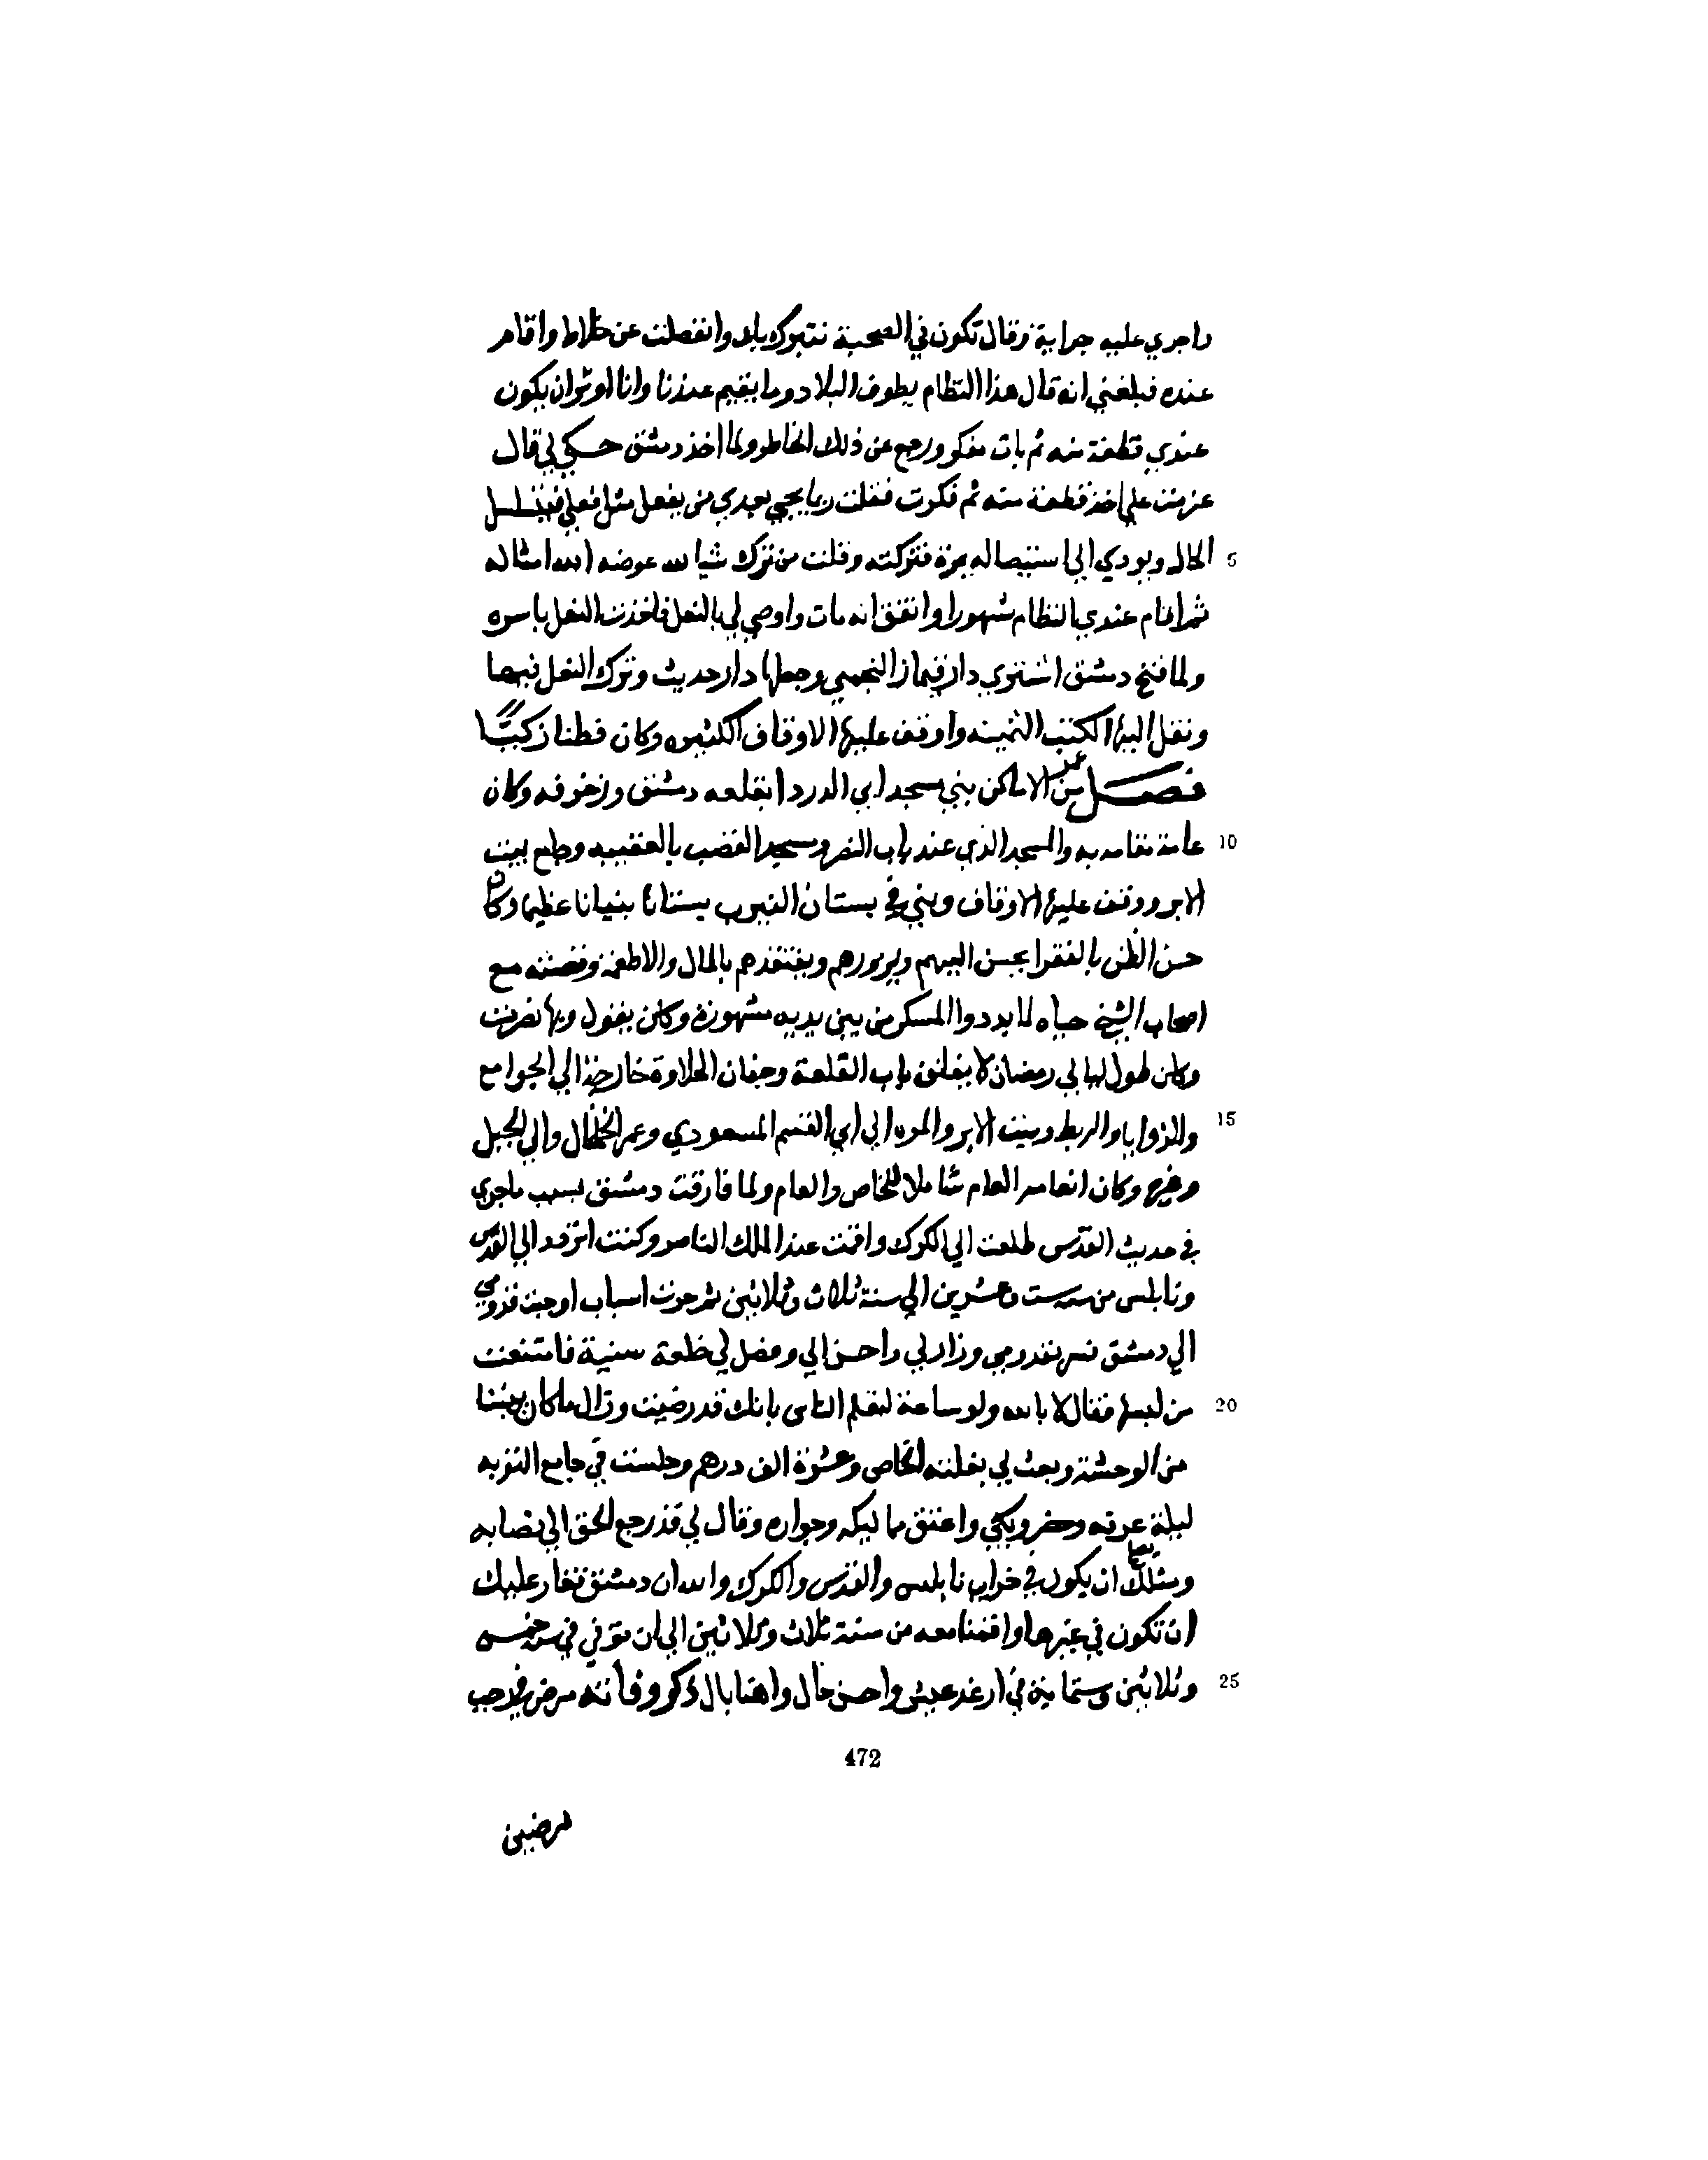 واجري عليه جراية وقال تكون في الصحبة نتبرك بك وانفصلت عن خلاط واقام
عنده فبلغني انه قال هذا النظام يطوف البلاد وما يقيم عندنا وانا اوثر ان يكون
عندي قطعة منه ثم بات مفكر ورجع عن ذلك الخاطر ولما اخذ دمشق حكي لي قال
عزمت علي اخذ قطعة منه ثم فكرت فقلت ربما يجي بعدي من يفعل مثل فعلي فيتسلسل
5 الحال ويودي الي استيصاله بمرة فتركته وقلت من ترك شيا لله عوضه الله امثاله
ثم اقام عندي النظام شهورا واتفق انه مات واوصي لي بالنعل فاخذت النعل باسره
ولما فتح دمشق اشتري دار قيماز النجمي وجعلها دار حديث وترك النعل فيها
ونقل اليها الكتب الثمينه واوقف عليها الاوقاف الكثيره وكان فطنا ذكيا
فصل الاماكن بني مسجد ابي الدردا بقلعه دمشق وزخرفه وكان
10 عامة مقامه به والمسجد الذي عند باب النصر ومسجد القصب بالعقيبه وجامع بيت
الابر ووقف عليها الاوقاف وبني في بستان النيرب بستانا بنيانا عظيما وكان
حسن الظن بالفقرا يحسن اليهم ويزورهم ويفتقدهم بالمال والاطعمة وقصته مع
اصحاب الشيخ حياه لما بددوا المسكر من بين يديه مشهورة وكان يقول وبها نصرت
وكان طول ليالي رمضان لا يغلق باب القلعة وجفان الحلاوة خارجة الي الجوامع
15 والزوايا والربط وبيت الابر والمزه الي ابي القسم المسعودي وعمر الخلخال والي الجبل
وغيره وكان انعامه العام شاملا للخاص والعام ولما فارقت دمشق بسبب ماجري
في حديث القدس طلعت الي الكرك واقمت عند الملك الناصر وكنت اتردد الي القدس
ونابلس من سنه ست وعشرين الي سنة ثلاث وثلاثين ثم جرت اسباب اوجبت قدومي
الي دمشق فسر بقدومي وزارني واحسن الي وفصل لي خلعة سنية فامتنعت
20 من لبسها فقال لا بالله ولو ساعة ليعلم الناس بانك قد رضيت وزال ماكان بيننا
من الوحشة وبعث لي بغلته الخاص وعشرة الف درهم وجلست في جامع التوبه
ليلة عرفه وحضر وبكي واعتق مماليكه وجواره وقال لي قد رجع الحق الي نصابه
ومثلك ان يكون في خراب نابلس والقدس والكرك والله ان دمشق تغار عليك
ان تكون في غيرها واقمنا معه من سنة ثلاث وثلاثين الي ان توفي في سنه خمس
25 وثلاثين وستماية في ارغد عيش واحسن حال واهنا بال ذكر وفاته مرض في رجب
472
مرضين